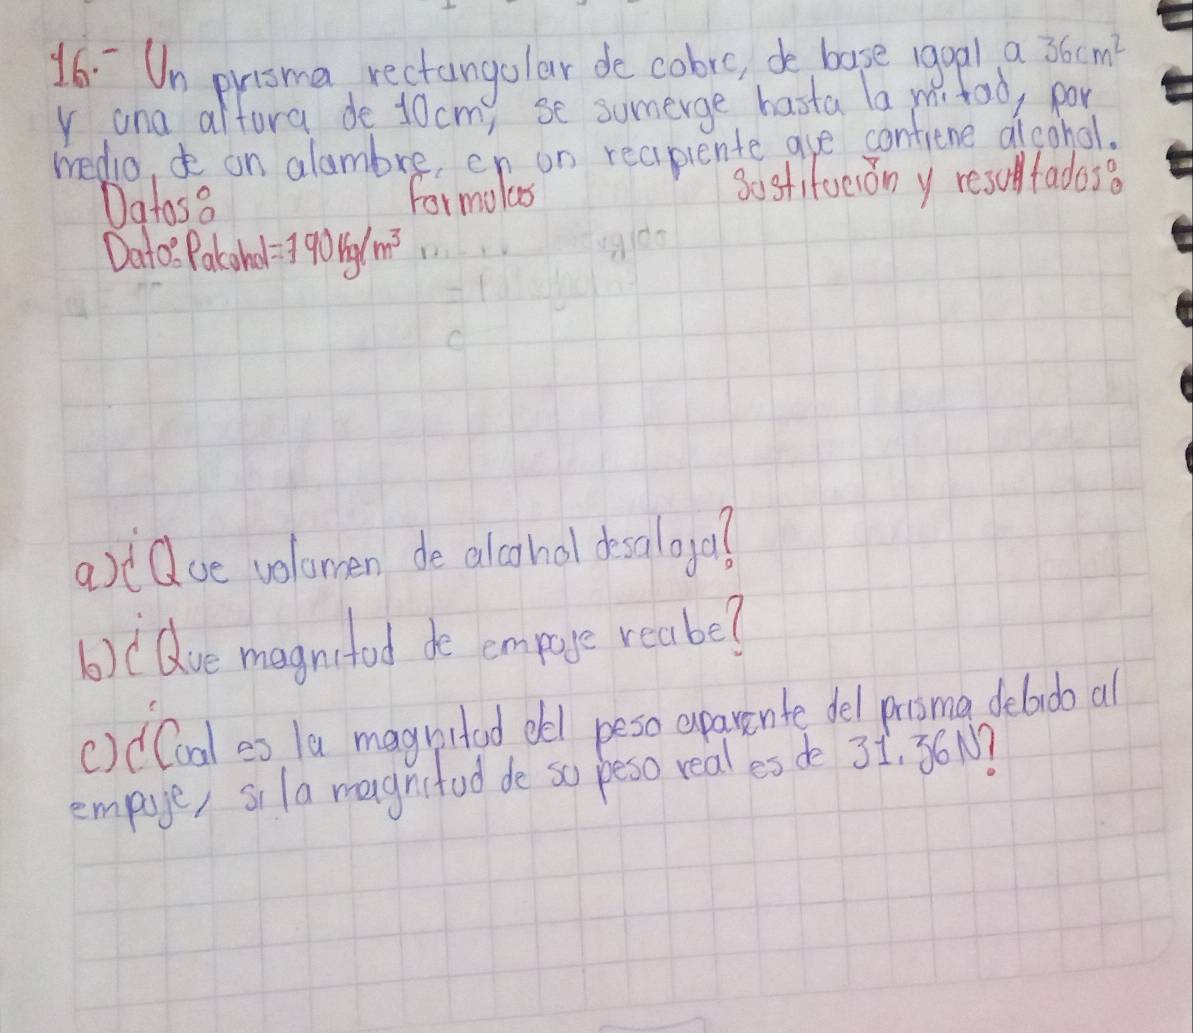 16.- Un prisma rectangular de cobre, de base igual a 36cm²
y una altura de 10cm, se sumerge hasta la mitad, por
medio, de un alambre, en un recipiente que contiene alcohol.
Datos: Formulas Sustitución y resultados:
Dato: Palcohol=790Kg/m³
a)¿Que volumen de alcohol desaloja?
b)¿Que magnitud de empuje recibe?
c)¿Cual es la magnitud del peso aparente del prisma debido al
empuje, si la magnitud de su peso real es de 31.36N?